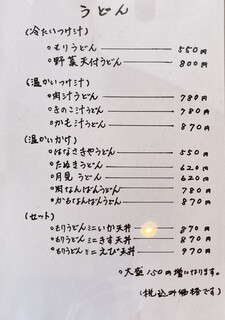 うどん
(冷たいつけ汁)
○もりうどん 550円
○野菜天付うどん 800円
(温かいつけ汁)
○肉汁うどん 780円
○きのこ汁うどん 780円
○かも汁うどん 870円
(温かいかけ)
○はなさきやうどん 550円
○たぬきうどん 620円
○月見うどん 620円
○肉なんばんうどん 780円
○かもなんばんうどん 870円
(セット)
○もりうどんミニいか天丼 870円
○もりうどんミニきす天丼 870円
○もりうどんミニえび天丼 970円
○大盛150円増になります。
(税込み価格です)